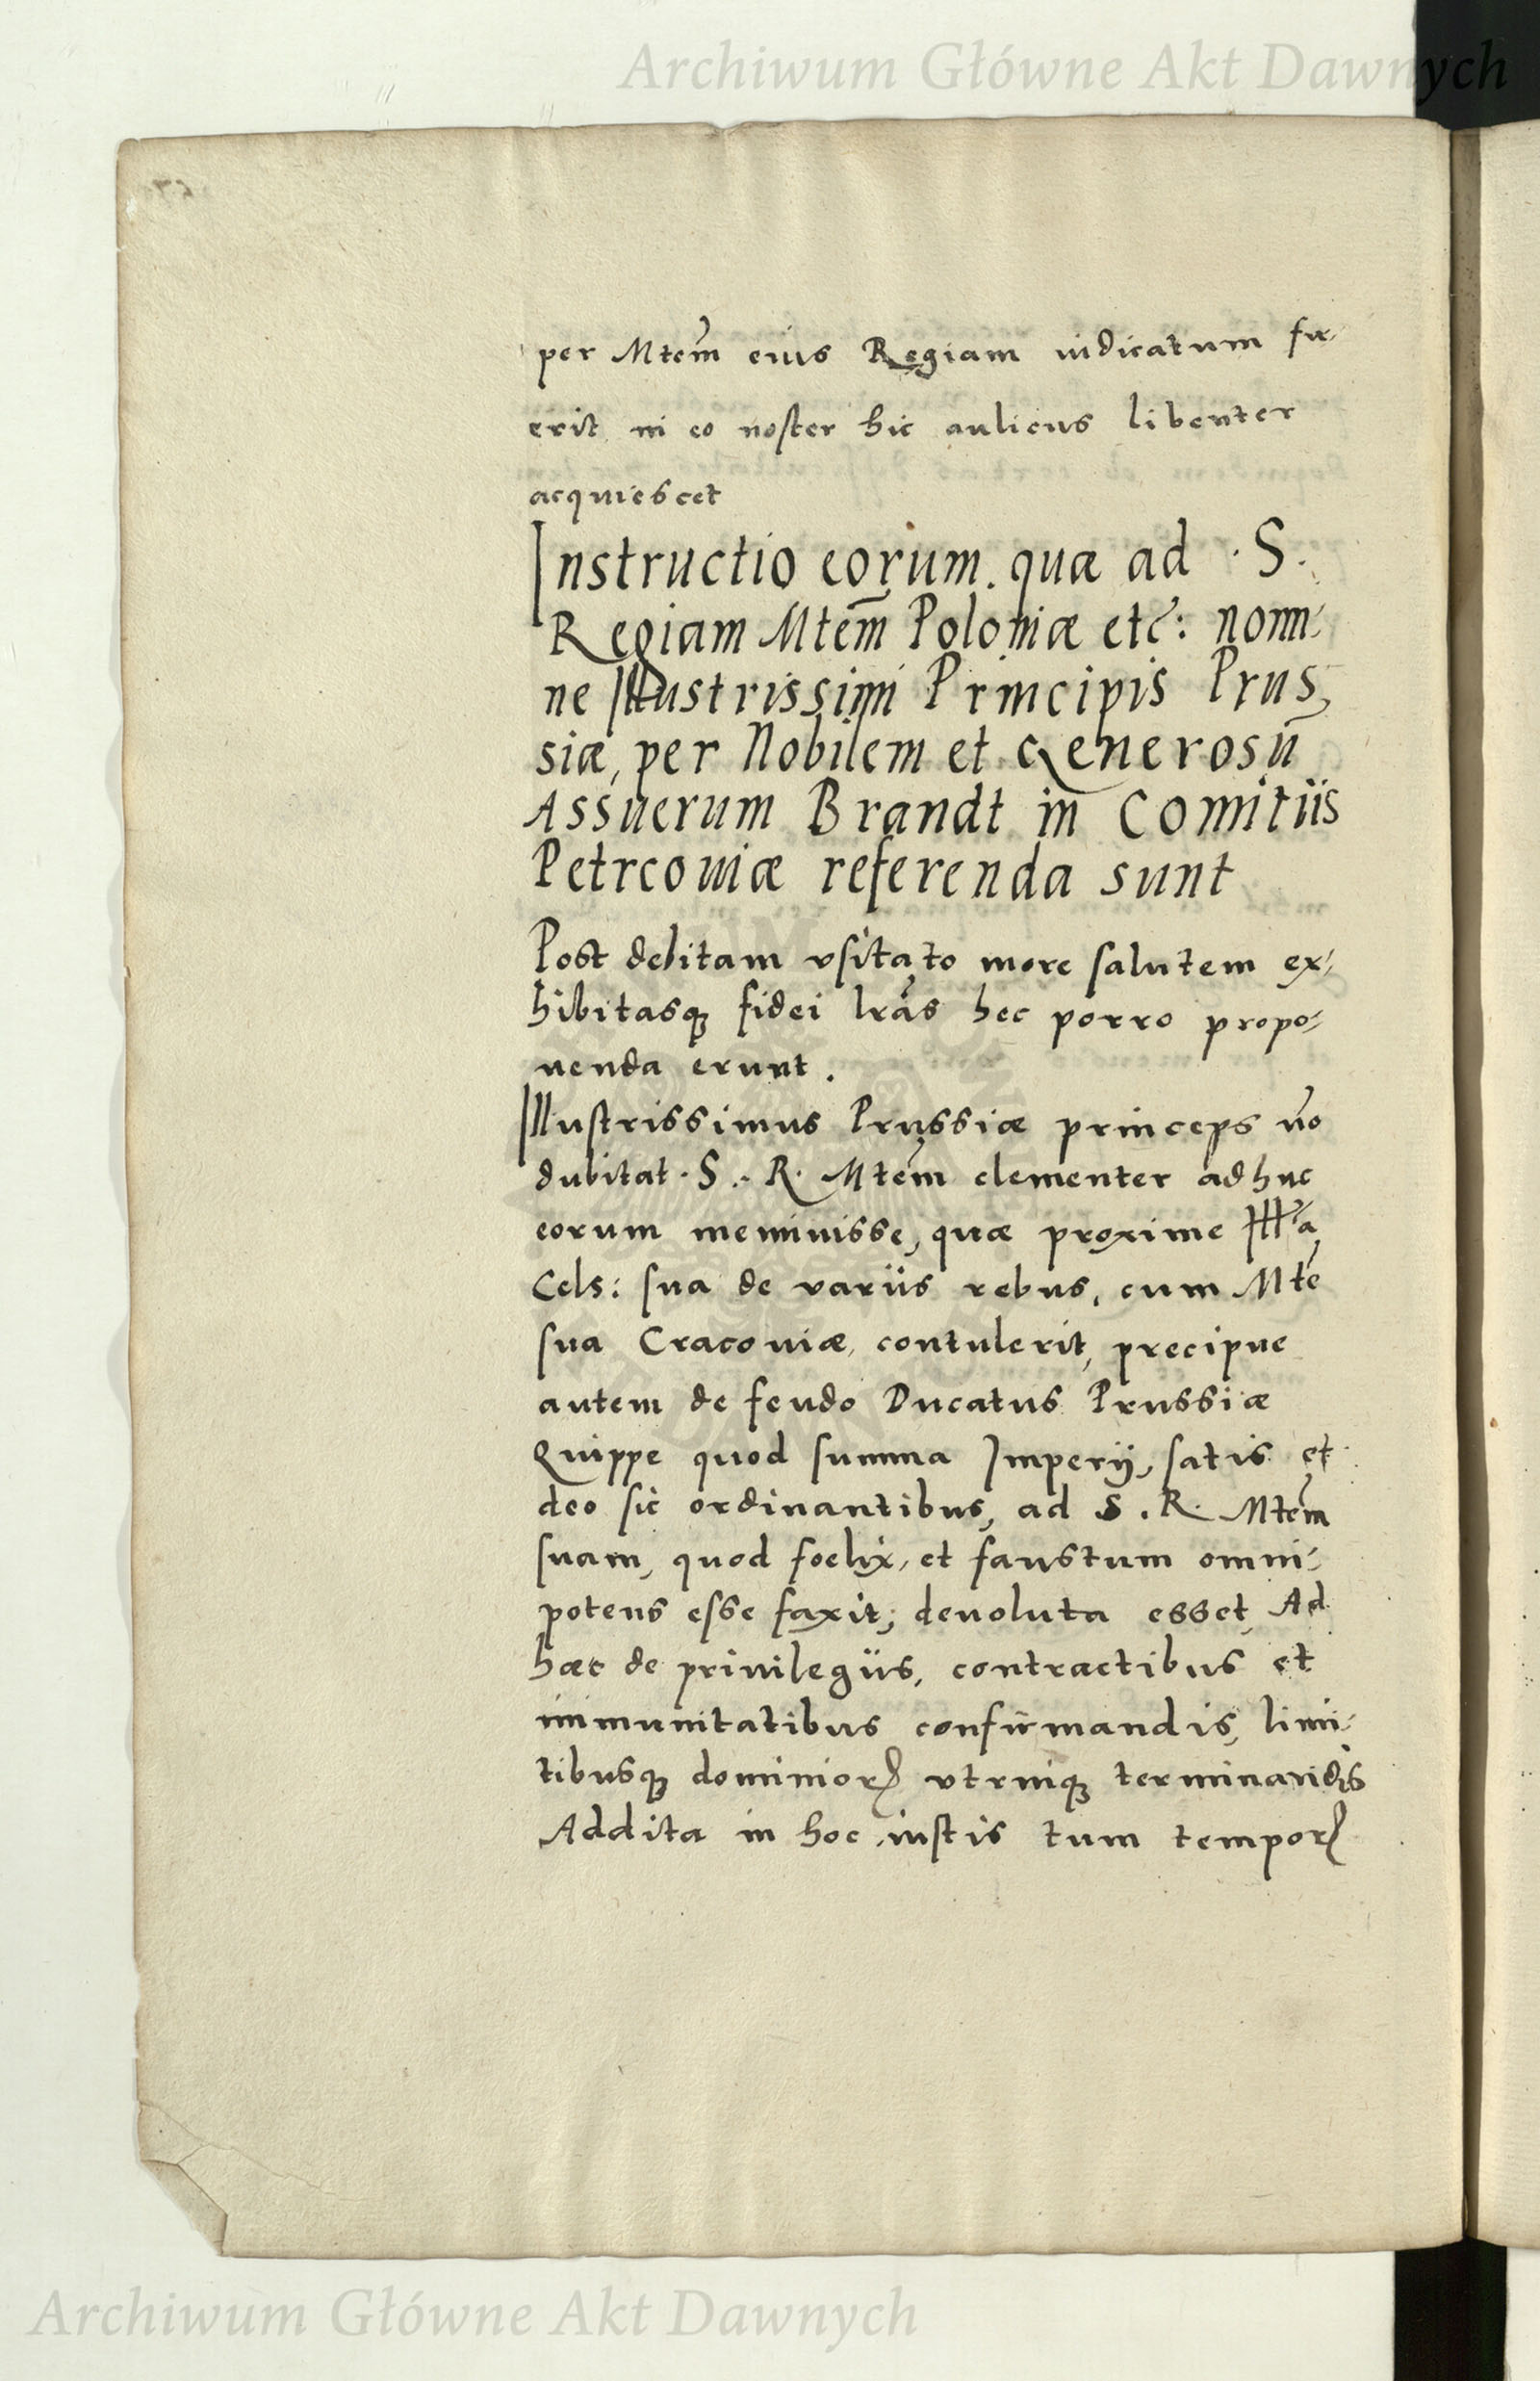 Archiwum Główne Akt Dawnych
per Mtem̃ eius Regiam iudicatum fu-
erit in eo noster hic aulicus libenter
acquiescet
Instructio eorum. quæ ad S.
Regiam Mtem̃ Poloniæ etc̃: nomi-
ne Illustrissimi Principis Prus,
siæ, per Nobilem et Generosũ
Assuerum Brandt in Comitiis
Petrcouiæ referenda sunt
Post debitam vsitato more salutem ex-
hibitasq₃ fidei lrãs hec porro propo-
nenda erunt.
Illustrissimus Prussiæ princeps nõ
dubitat. S. R. Mtem̃ clementer adhuc
eorum meminisse, quæ proxime Illᵃ
Cels: sua de variis rebus, cum Mtẽ
sua Cracouiæ, contulerit, precipue
autem de feudo Ducatus Prussiæ
Quippe quod summa Imperij, satis et
deo sic ordinantibus, ad S. R. Mtem̃
suam, quod foelix, et faustum omni-
potens esse faxit; deuoluta esset, Ad
hæc de priuilegiis, contractibus et
immunitatibus confirmandis, limi-
tibusq₃ dominioꝝ vtrinq₃ terminandis
Addita in hoc iustis tum tempoꝝ
Archiwum Główne Akt Dawnych